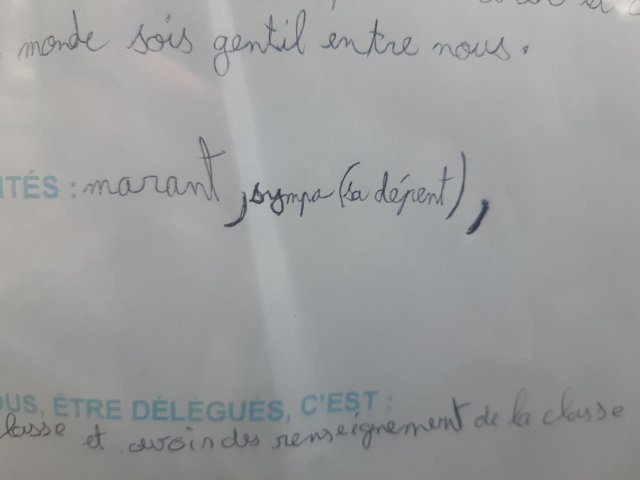 monde sois gentil entre nous.
ITÉS : marant, sympa (sa dépent),
OUS, ÊTRE DÉLÉGUÉS, C'EST :
lasse et avoir des renseignement de la classe